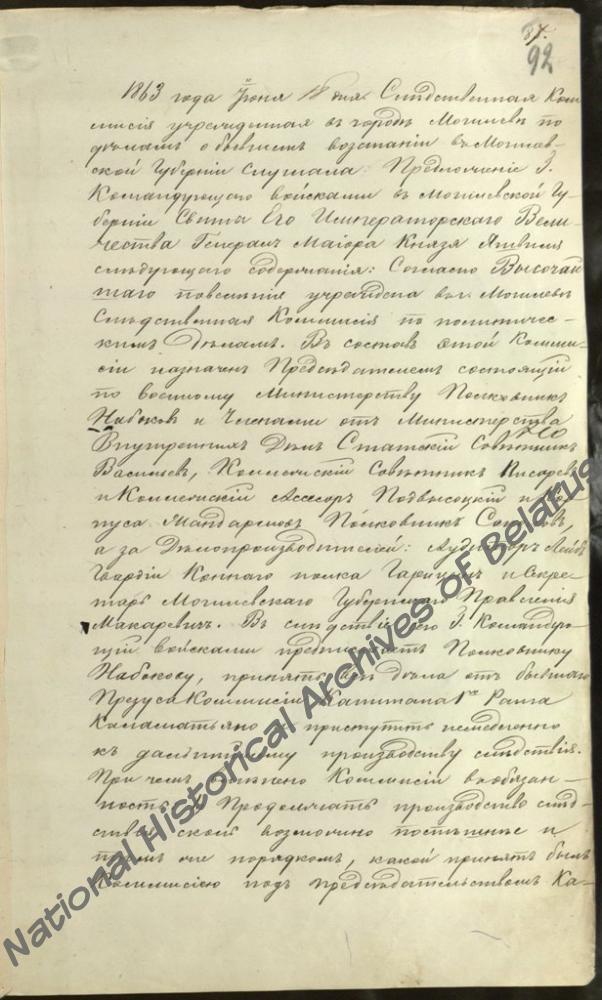 87.
92
1863 года Іюня 18 дня Слѣдственная Ком-
мисія учрежденная въ городѣ Могилевѣ по
дѣламъ о бывшемъ возстаніи въ Могилев-
ской Губерніи слушала: Предложеніе Г.
Командующаго войсками въ Могилевской Гу-
берніи Свиты Его Императорскаго Вели-
чества Генералъ Маіора Князя Яшвиля
слѣдующаго содержанія: Согласно Высочай-
шаго повелѣнія учреждена въ г. Могилевѣ
Слѣдственная Коммисія по политичес-
кимъ Дѣламъ. Въ составъ этой Комми-
сіи назначенъ Предсѣдателемъ состоящій
по военному Министерству Полковникъ
Набоковъ и Членами отъ Министерства
Внутреннихъ Дѣлъ Статскій Совѣтникъ
Васильевъ, Коллежскій Совѣтникъ Писаревъ
и Коллежскій Асесоръ Подвысоцкій и
пуса Жандармовъ Полковникъ
а за Дѣлопроизводителей: Аудиторъ Лейбъ
Гвардіи Коннаго полка и Секре-
тарь Могилевскаго Губернскаго Правленія
Макаревичъ. Въ слѣдствіе сего Г. Командую-
щій войсками Полковнику
Набокову, принять дѣла отъ бывшаго
Презуса Коммисіи Капитана 1го Ранга
Каламатьяно и приступить немедленно
къ дальнѣйшему производству слѣдствія.
При чемъ Коммисіи въ обязан-
ность Продолжать производство слѣд-
ствія возможно поспѣшнѣе и
тѣмъ же порядкомъ, какой принятъ былъ
Коммисіею подъ предсѣдательствомъ Ка-
National Historical Archives of Belarus